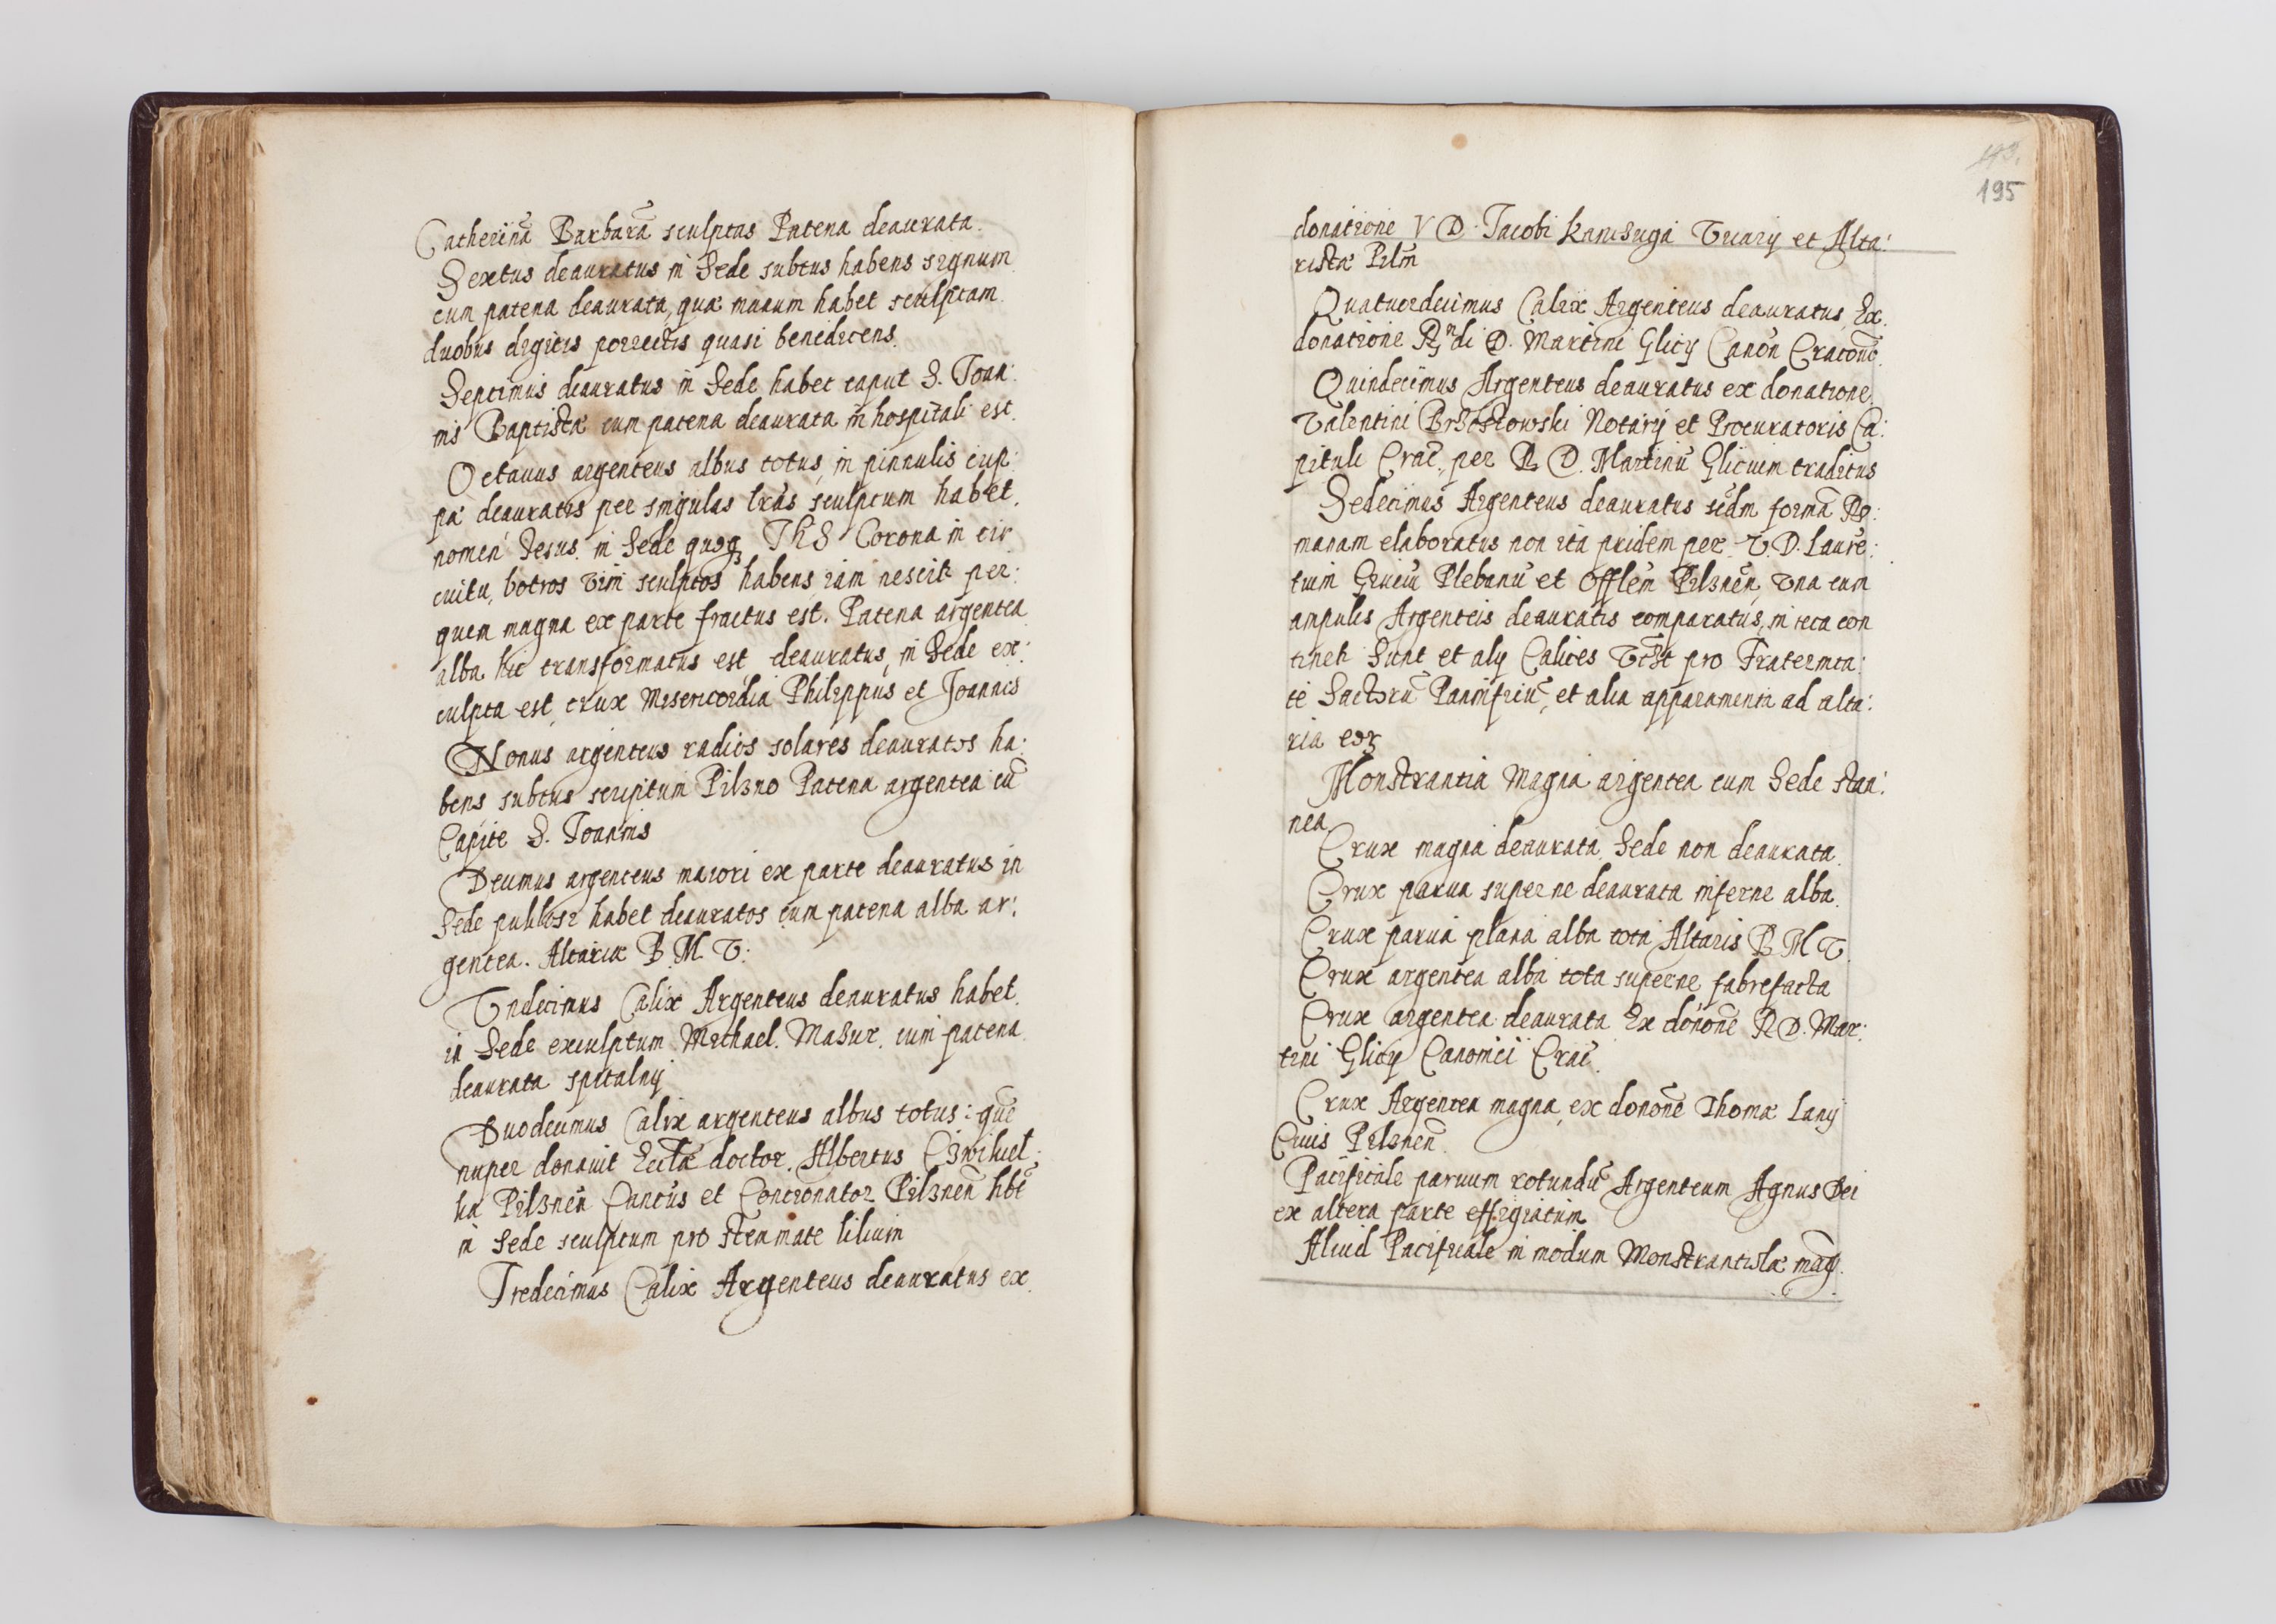 Catherinā Barbarā sculptas Patena deaurata.
Sextus deauratus in Sede subtus habens signum
cum patena deaurata, qua manum habet sculptam
duobus digitis porrectis quasi benedicens.
Septimus deauratus in Sede habet caput S. Joan:
nis Baptistæ cum patena deaurata in hospitali est.
Octauus argenteus albus totus, in pinnulis cup:
pa deauratis per singulas lrās sculptum habet
nomen Jesus. in Sede quoq3 IhS Corona in cir
cuitu, botros vini sculptos habens, iam nescit per:
quem magna ex parte fractus est. Patena argentea
alba hic transformatus est deauratus, in Sede ex:
culpta est crux Misericordia Philippus et Joannes
Nonus argenteus radios solares deauratos ha:
bens subtus scriptum Pilzno Patena argentea cū
Capite S. Joannis
Decimus argenteus maiori ex parte deauratus in
Sede habet deauratos cum patena alba ar:
gentea. Altaria B. M. V:
Vndecimus Calix Argenteus deauratus habet
in Sede exculptum Michael. Mazur. cum patena
deaurata spitalny
Duodecimus Calix argenteus albus totus: quē
nuper donauit Eccłæ doctor. Albertus
Pilznēn Cantus et Concionator Pilznēn hēt
in Sede sculptum pro stemmate lilium
Tredecimus Calix Argenteus deauratus ex
193.
195
donatione V D. Jacobi Vicarij et Alta:
ristæ Pilzn̄
Quatuordecimus Calix Argenteus deauratus, Ex
donatione Rndi D. Martini Glicy Canōn Cracouē.
Quindecimus Argenteus deauratus ex donatione
Valentini Brzostowski Notarij et Procuratoris Ca:
pituli Crac̄., per R. D. Martinū Glicium traditus
Sedecimus Argenteus deauratus sēdm formā Ro:
manam elaboratus non ita pridem per V. D. Laurē:
tium Plebanū et Offlēm Pilznēn, Vna cum
ampulis Argenteis deauratis comparatus, in teca con
tineti Sunt et aly Calices pro Fraternita:
te Sactorū Pannificiū, et alia apparamenta ad alta:
ria eor̄
Monstrantia Magna argentea cum Sede stan:
nea
Crux magna deaurata Sede non deaurata
Crux parua superne deaurata inferne alba
Crux parua plana alba tota Altaris B M V
Crux argentea alba tota superne fabrefacta
Crux argentea deaurata Ex donōne R D. Mar:
tini Glicy Canonici Crac̄.
Crux Argentea magna, ex donōne Thomæ Lany
Ciuis Pilznēn
Pacificale paruum rotundū Argenteum Agnus Dei
ex altera parte effigiatum
Aliud Pacificale in modum Monstrantiolæ māg.